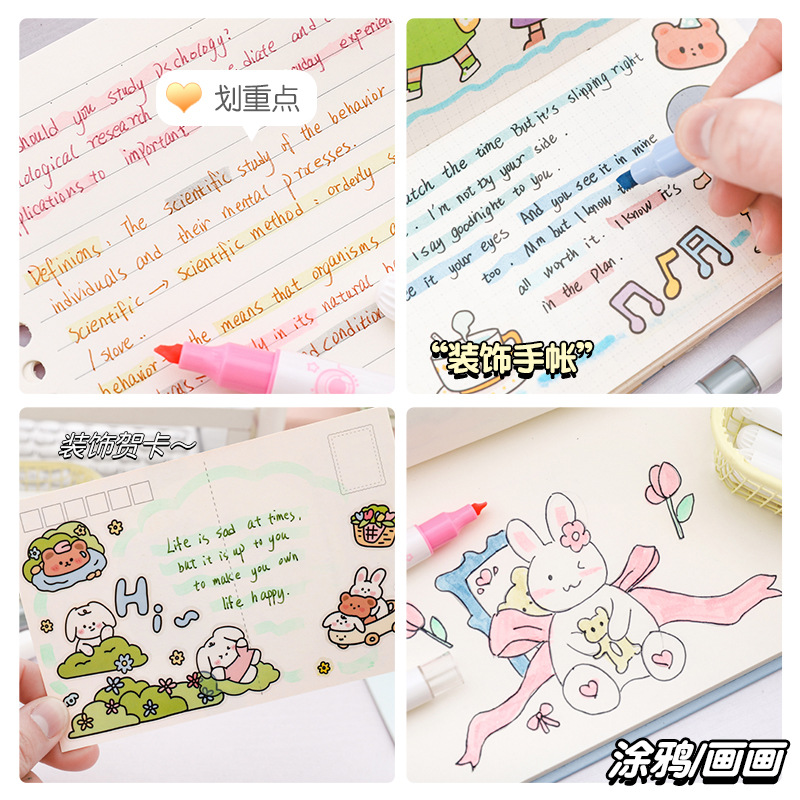 should you study Dschology?
划重点
ological research
plications to important
Definions: The scientific study of the behavior
individuals and their mental processes.
scientific → scientific method: orderly s
I slove.. the means that organisms
behavior
in its natural
condition
atch the time But it's slipping right
I'm not by your side.
I say goodnight to you. And you see it in mine
it your eyes
too. Mm but I know
all worth it. I know it's
in the plan.
“装饰手帐”
装饰贺卡～
Life is sad at times,
but it is up to you
to make you own
life happy.
His
涂鸦/画画